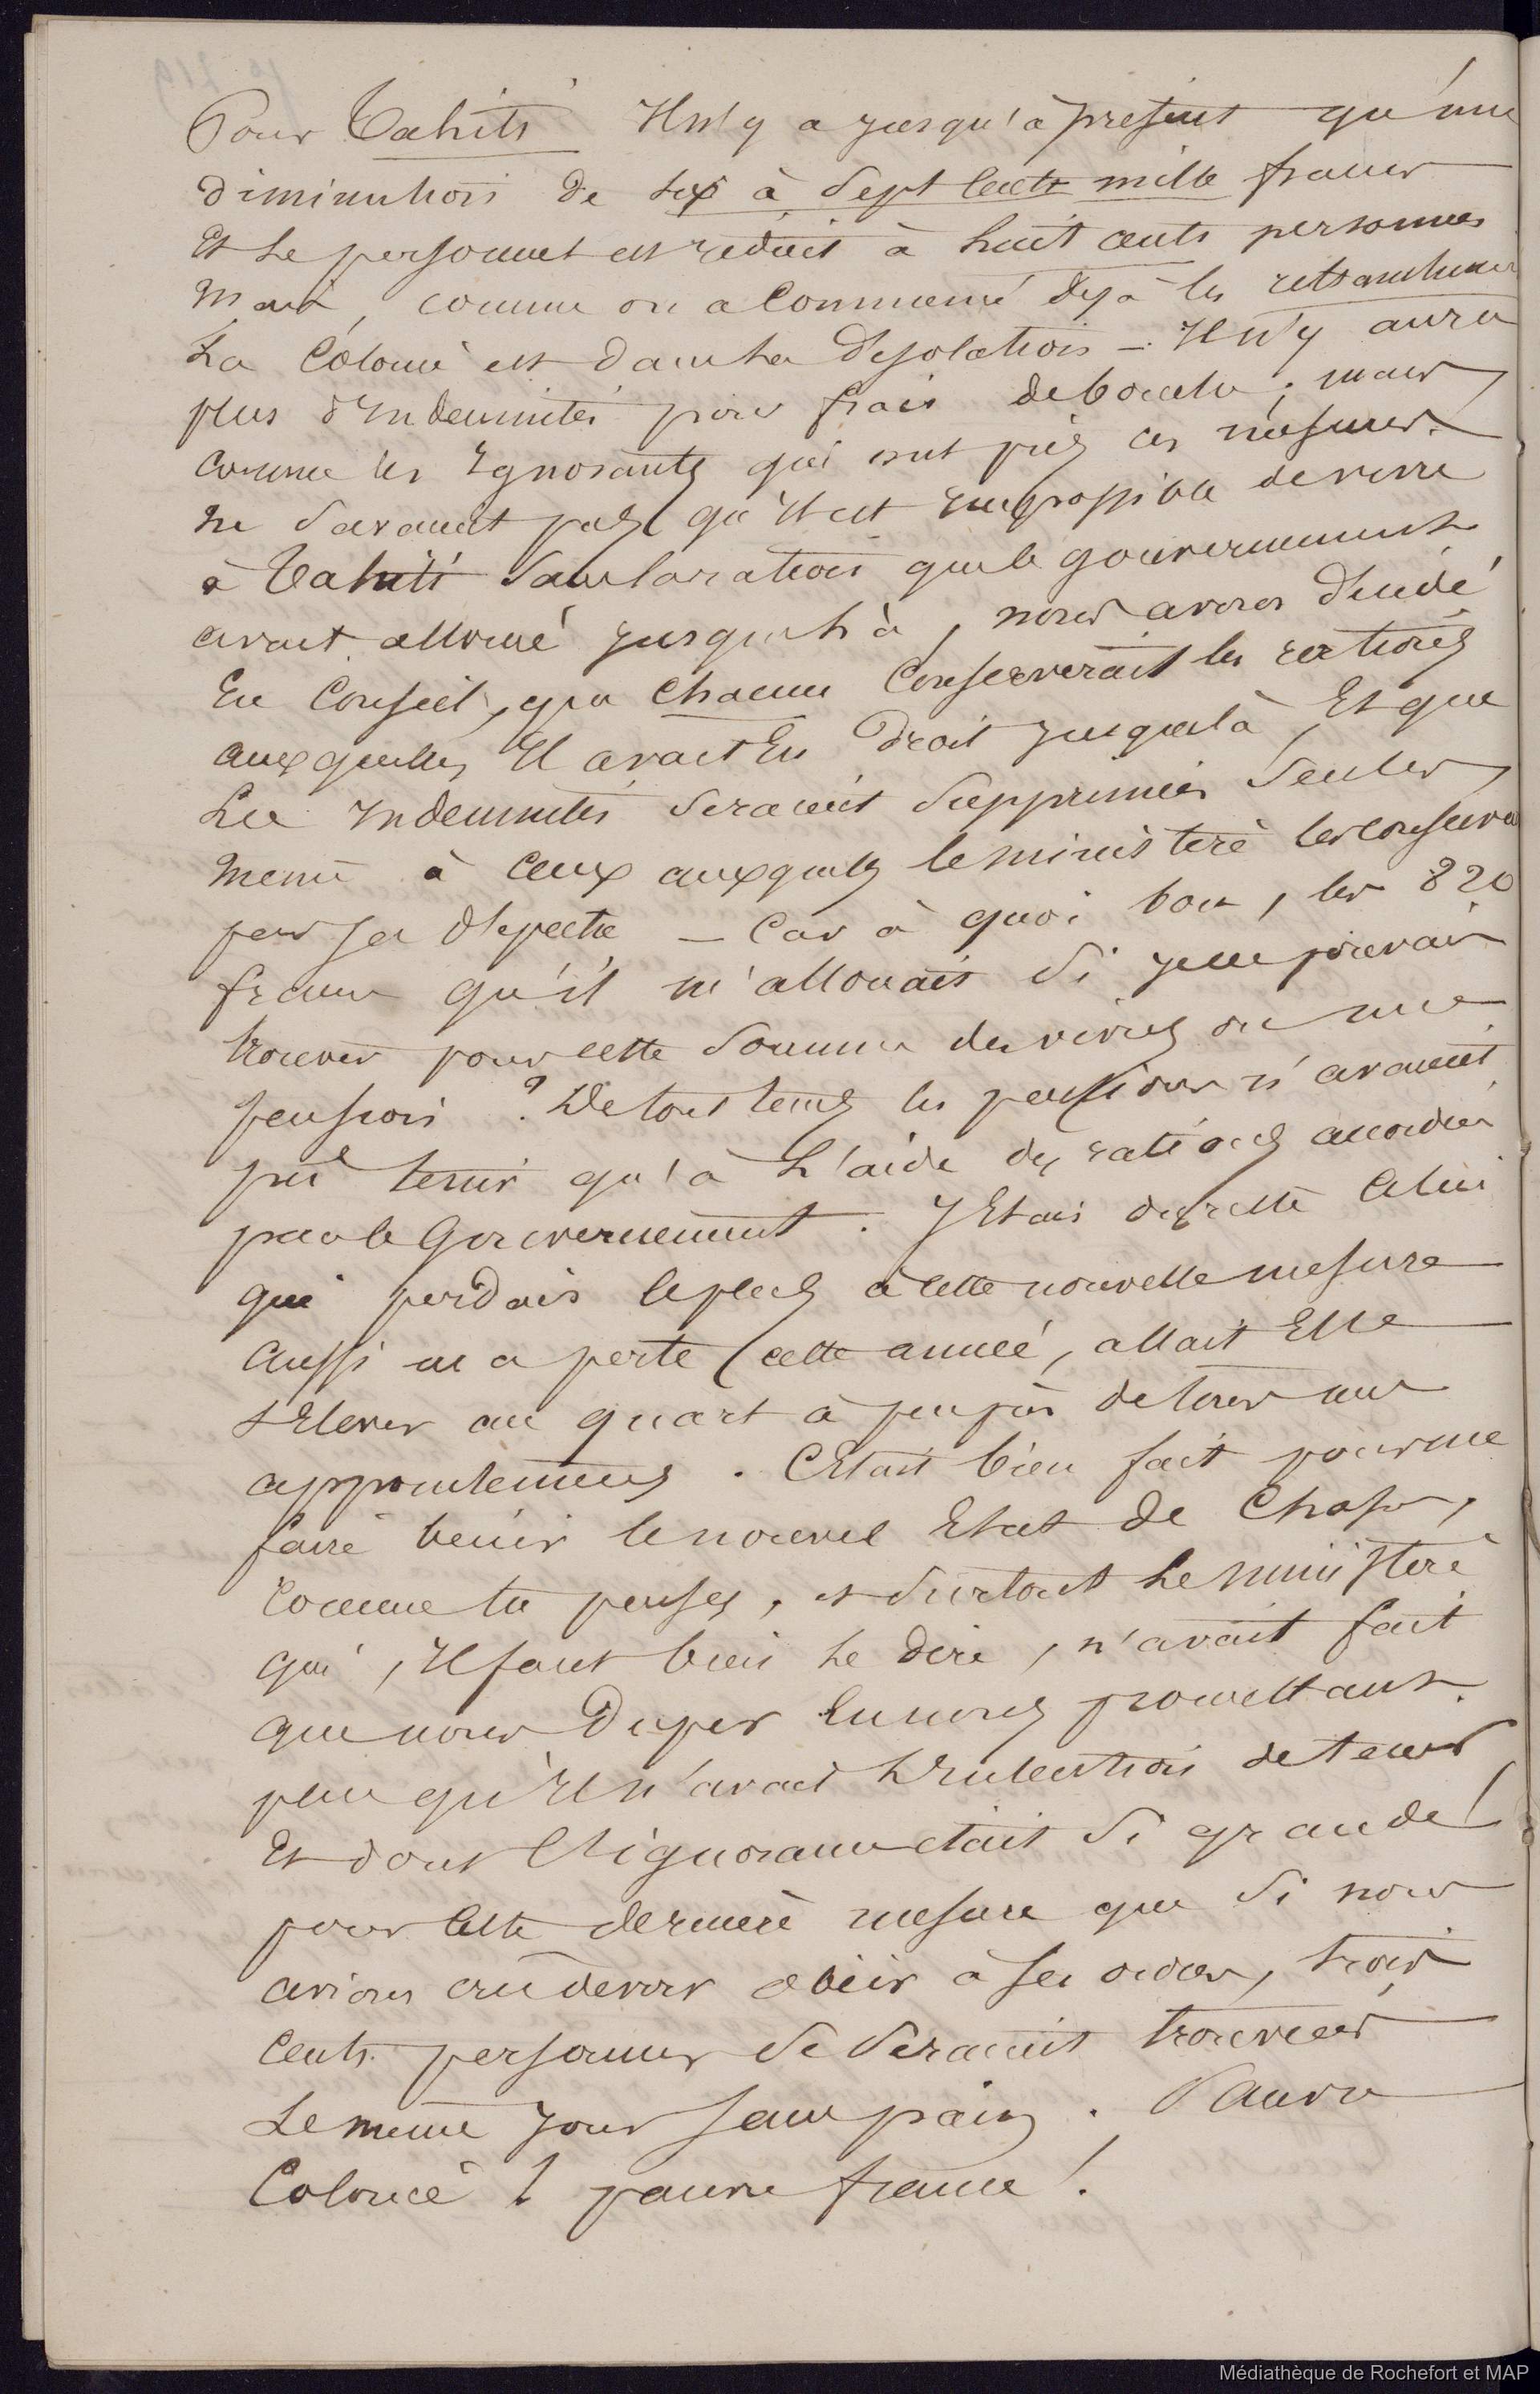 Pour Tahiti Il n'y a jusqu'à présent qu'une
diminution de six à sept cents mille francs
Et le personnel est réduit à huit cents personnes
Mais, comme on a commencé déjà les
La Colonie est dans la désolation — Il n'y aura
plus d'Indemnités pour frais de bouche ; mais
comme les Ignorants qui ont pris ces mesures.
ne savaient pas qu'il est impossible de vivre
à Tahiti sans la ration que le gouvernement
avait alloué jusque là, nous avons décidé
En Conseil, que chacun Conserverait les rations
auxquelles Il avait Eu Droit jusque là, Et que
Les Indemnités seraient supprimées seules
même à Ceux auxquels le ministère les conserva
par sa dépêche — Car à quoi bon, les 820
francs qu'il m'allouait si je ne pouvais
trouver pour cette somme des vivres ou une
pension ? De tout temps les pensions n'avaient
pû tenir qu'à L'aide des rations accordées
par le Gouvernement. J'Etais de celui
qui perdais le plus à cette nouvelle mesure
Aussi ma perte cette année, allait Elle
s'Elever au quart à peu près de tous mes
appointements. C'Etait bien fait pour me
faire bénir le nouvel Etat de Chose,
Comme tu penses, et surtout Le ministère
qui, Il faut bien Le dire, n'avait fait
que nous Duper En nous promettant.
plus qu'Il n'avait L'Intention de tenir
Et dont L'ignorance était si grande !
pour cette dernière mesure que si nous
avions cru devoir obéir à ses ordres, trois
Cents personnes se seraient trouvées
Le même jour sans pain. Pauvre
Colonie ! pauvre france !
Médiathèque de Rochefort et MAP